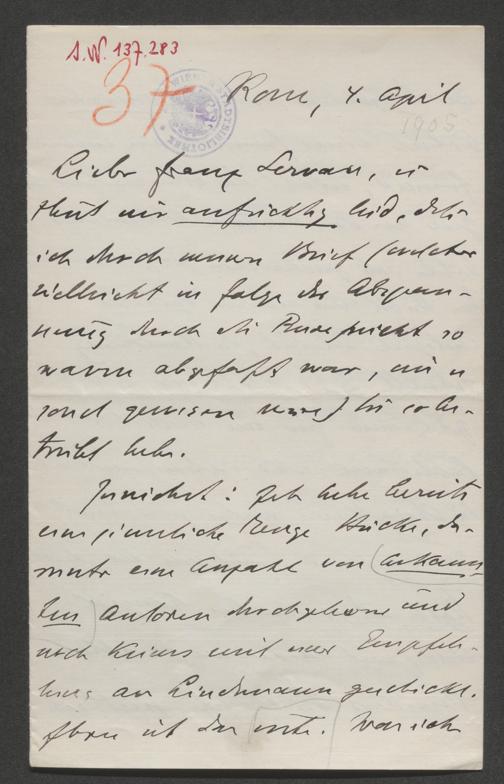 J.N. 137.283
37
WIENER STADTBIBLIOTHEK
Rom, 4. April
1905
Lieber Franz Servaes, es
thut mir aufrichtig leid, daß
ich durch meinen Brief (welcher
vielleicht in Folge der Abspan-
nung durch die Reise nicht so
warm abgefaßt war, wie er
sonst gewesen wäre) Sie so be-
trübt habe.
Zunächst: Ich habe bereits
eine ziemliche Menge Stücke, da-
runter eine Anzahl von bekann-
ten Autoren durchgelesen und
noch keines mit einer Empfeh-
lung an Lindemann geschickt.
Ihres ist das erste. Was ich